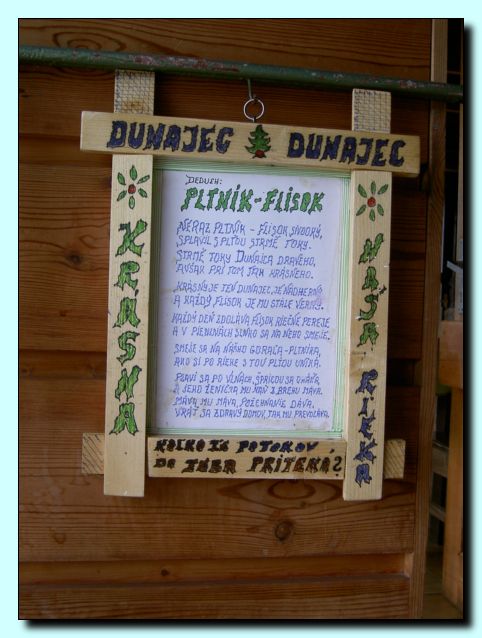 DUNAJEC DUNAJEC
KRASNA
NAŠA RIEKA
DEDUCH:
PLTNÍK-FLISOK
NERAZ PLTNÍK - FLISOK SIVOOKÝ,
SPLAVIL S PLŤOU STRMÉ TOKY.
STRMÉ TOKY DUNAJCA DRAVÉHO,
AVŠAK PRI TOM TAK KRÁSNEHO.
KRÁSNY JE TEN DUNAJEC, JE NÁDHERNÝ
A KAŽDÝ FLISOK JE MU STÁLE VERNÝ.
KAŽDÝ DEŇ ZDOLÁVA FLISOK RIEČNE PEREJE
A V PIENINÁCH SLNKO SA NA NEHO SMEJE.
SMEJE SA NA NÁŠHO GORAĽA-PLTNÍKA,
AKO SI PO RIEKE S TOU PLŤOU UNIKÁ.
PLAVÍ SA PO VLNÁCH, ŠPRICOU SA OHÁŇA,
A JEHO ŽENIČKA MU NAŇ Z BREHU MÁVA.
MÁVA MU MÁVA, POŽEHNANIE DÁVA,
VRÁŤ SA ZDRAVÝ DOMOV, TAK MU PREVOLÁVA.
KOĽKO ŽE POTOKOV
DO TEBA PRITEKÁ?